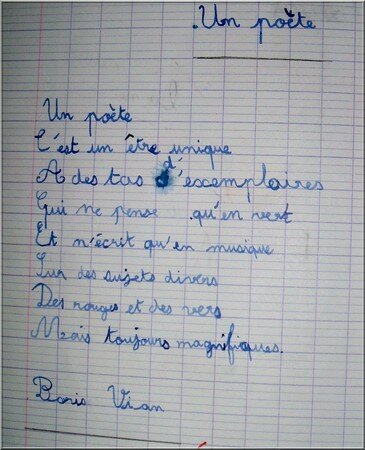 Un poète
Un poète
C'est un être unique
A des tas d'exemplaires
Qui ne pense qu'en vert
Et n'écrit qu'en musique
Sur des sujets divers
Des rouges et des vers
Mais toujours magnifiques.
Boris Vian